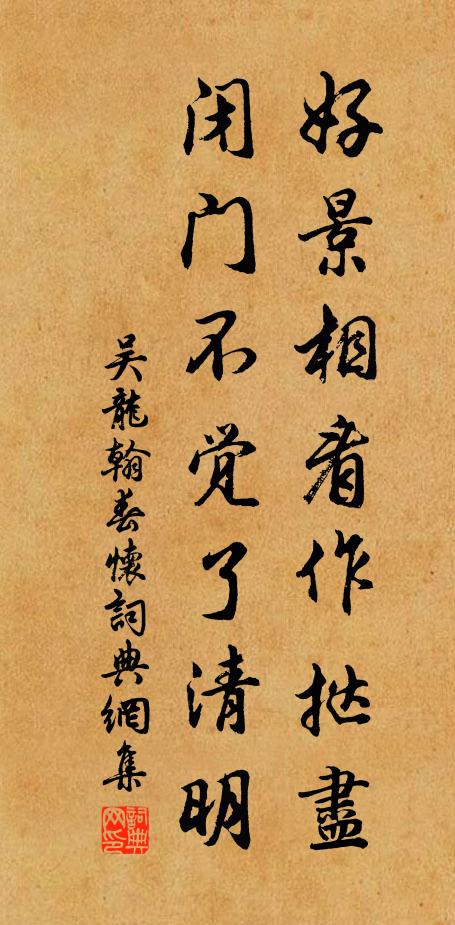 好景相看作挞盡
闭门不觉了清明
吴龍翰春懷詞典網集
詞典
网印